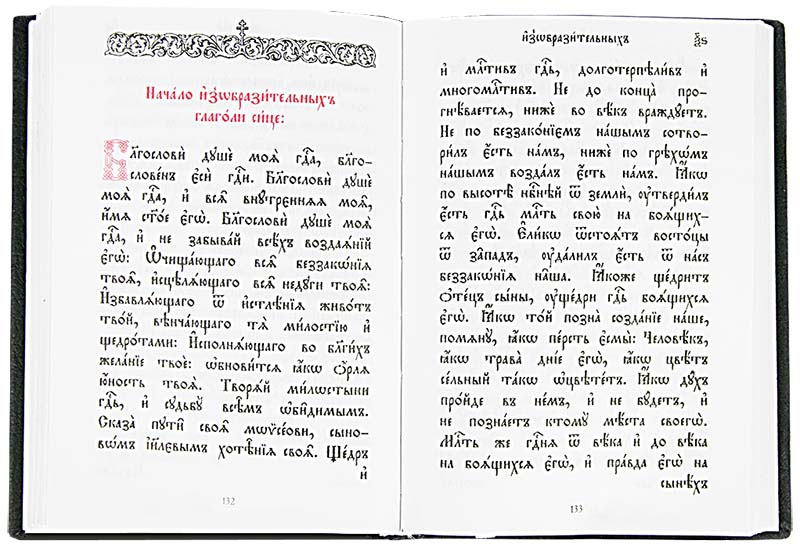 Нача́ло и҆зѡбрази́тельныхъ
глаго́ли си́це:
Бл҃гословѝ душѐ моѧ̀ гдⷭ҇а, бл҃го-
слове́нъ є҆сѝ гдⷭ҇и. Бл҃гословѝ душѐ
моѧ̀ гдⷭ҇а, и҆ всѧ̑ внꙋ́тренѧѧ моѧ̑,
и҆́мѧ ст҃о́е є҆гѡ̀. Бл҃гословѝ душѐ моѧ̀
гдⷭ҇а, и҆ не забыва́й всѣ́хъ воздаѧ́нїй
є҆гѡ̀: Ѡ҆чища́ющаго всѧ̑ беззакѡ́нїѧ
твоѧ̑, и҆сцѣлѧ́ющаго всѧ̑ недꙋ́ги твоѧ̑:
И҆збавлѧ́ющаго ѿ и҆стлѣ́нїѧ живо́тъ
тво́й, вѣнча́ющаго тѧ̀ ми́лостїю и҆
щедро́тами: И҆сполнѧ́ющаго во бл҃ги́хъ
жела́нїе твоѐ: ѡ҆бнови́тсѧ ꙗ҆́кѡ ѻ҆́рлѧ
ю҆́ность твоѧ̀. Творѧ́й ми́лѡстыни
гдⷭ҇ь, и҆ сꙋдьбꙋ̀ всѣ̑мъ ѡ҆би̑димымъ.
Сказа̀ пꙋти̑ своѧ̑ мѡѷсе́ови, сыно-
вѡ́мъ і҆и҃левымъ хотѣ̑нїѧ своѧ̑. Ще́дръ
и҆
132
и҆зѡбрази́тельныхъ
и҆ млⷭ҇тивъ гдⷭ҇ь, долготерпѣли́въ и҆
многомлⷭ҇тивъ. Не до конца̀ про-
гнѣ́ваетсѧ, нижѐ во вѣ́къ враждꙋ́етъ.
Не по беззако́нїємъ на́шымъ сотво-
ри́лъ є҆́сть на́мъ, нижѐ по грѣхѡ́мъ
на́шымъ возда́лъ є҆́сть на́мъ. Ꙗ҆́кѡ
по высотѣ̀ нб҃нѣй ѿ землѝ, ᲂу҆тверди́лъ
є҆́сть гдⷭ҇ь млⷭ҇ть свою̀ на боѧ́щих-
сѧ є҆гѡ̀. Є҆ли́кѡ ѿстоѧ́тъ восто́цы
ѿ за̑падъ, ᲂу҆дали́лъ є҆́сть ѿ на́съ
беззакѡ́нїѧ на̑ша. Ꙗ҆́коже ще́дритъ
ѻ҆те́цъ сы́ны, ᲂу҆ще́дри гдⷭ҇ь боѧ́щихсѧ
є҆гѡ̀. Ꙗ҆́кѡ то́й позна̀ созда́нїе на́ше,
помѧнꙋ̀, ꙗ҆́кѡ пе́рсть є҆смы̀: Человѣ́къ,
ꙗ҆́кѡ трава̀ дні́е є҆гѡ̀, ꙗ҆́кѡ цвѣ́тъ
се́льный та́кѡ ѡ҆цвѣте́тъ. Ꙗ҆́кѡ дꙋ́хъ
про́йде въ не́мъ, и҆ не бꙋ́детъ, и҆
не позна́етъ ктомꙋ̀ мѣ́ста своегѡ̀.
Млⷭ҇ть же гдⷭ҇нѧ ѿ вѣ́ка и҆ до вѣ́ка
на боѧ́щихсѧ є҆гѡ̀, и҆ пра́вда є҆гѡ̀ на
сынѣ́хъ
133